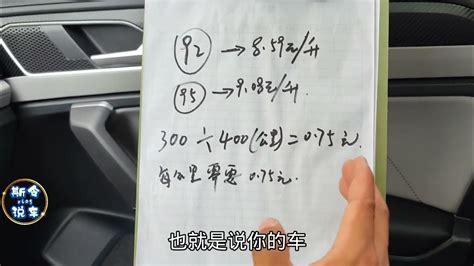 92 → 8.59元/升
95 → 9.08元/升
300 ÷ 400(公里)=0.75元.
每公里需要 0.75元.
斯令
vlog
说车
也就是说你的车